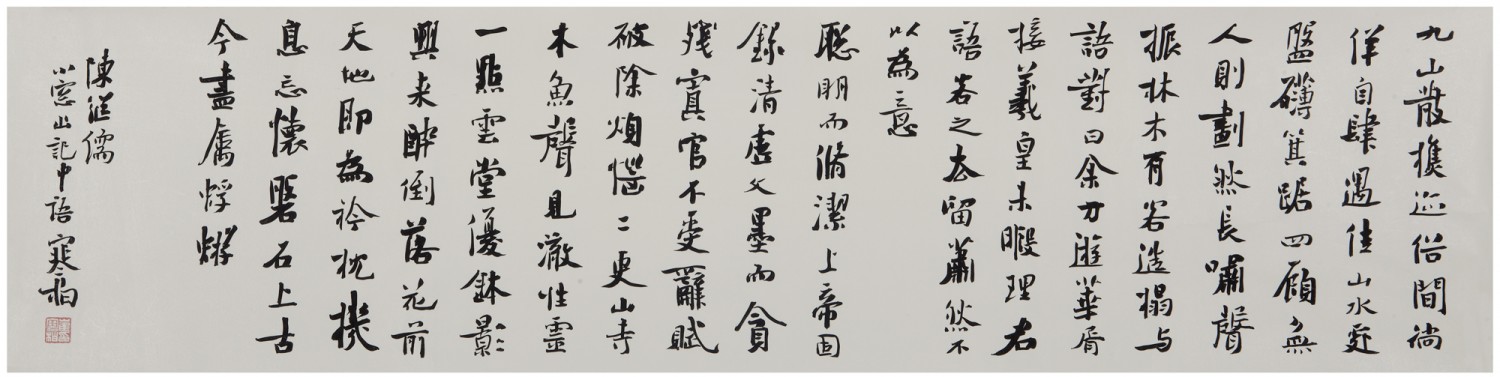 九山散樵迹俗間徜
徉自肆遇佳山水處
盤礡箕踞四顧無
人則劃然長嘯聲
振林木有客造榻与
語對曰余方遊華胥
接羲皇未暇理君
語客之去留蕭然不
以為意
聡明而脩潔上帝固
錄清虛文墨而貪
殘冥官不受辭賦
破除煩惱二更山寺
木魚聲見澈性靈
一點雲堂優鉢影
興来醉倒落花前
天地即為衿枕機
息忘懷磐石上古
今盡属蜉蝣
陳繼儒
小窗幽記中語